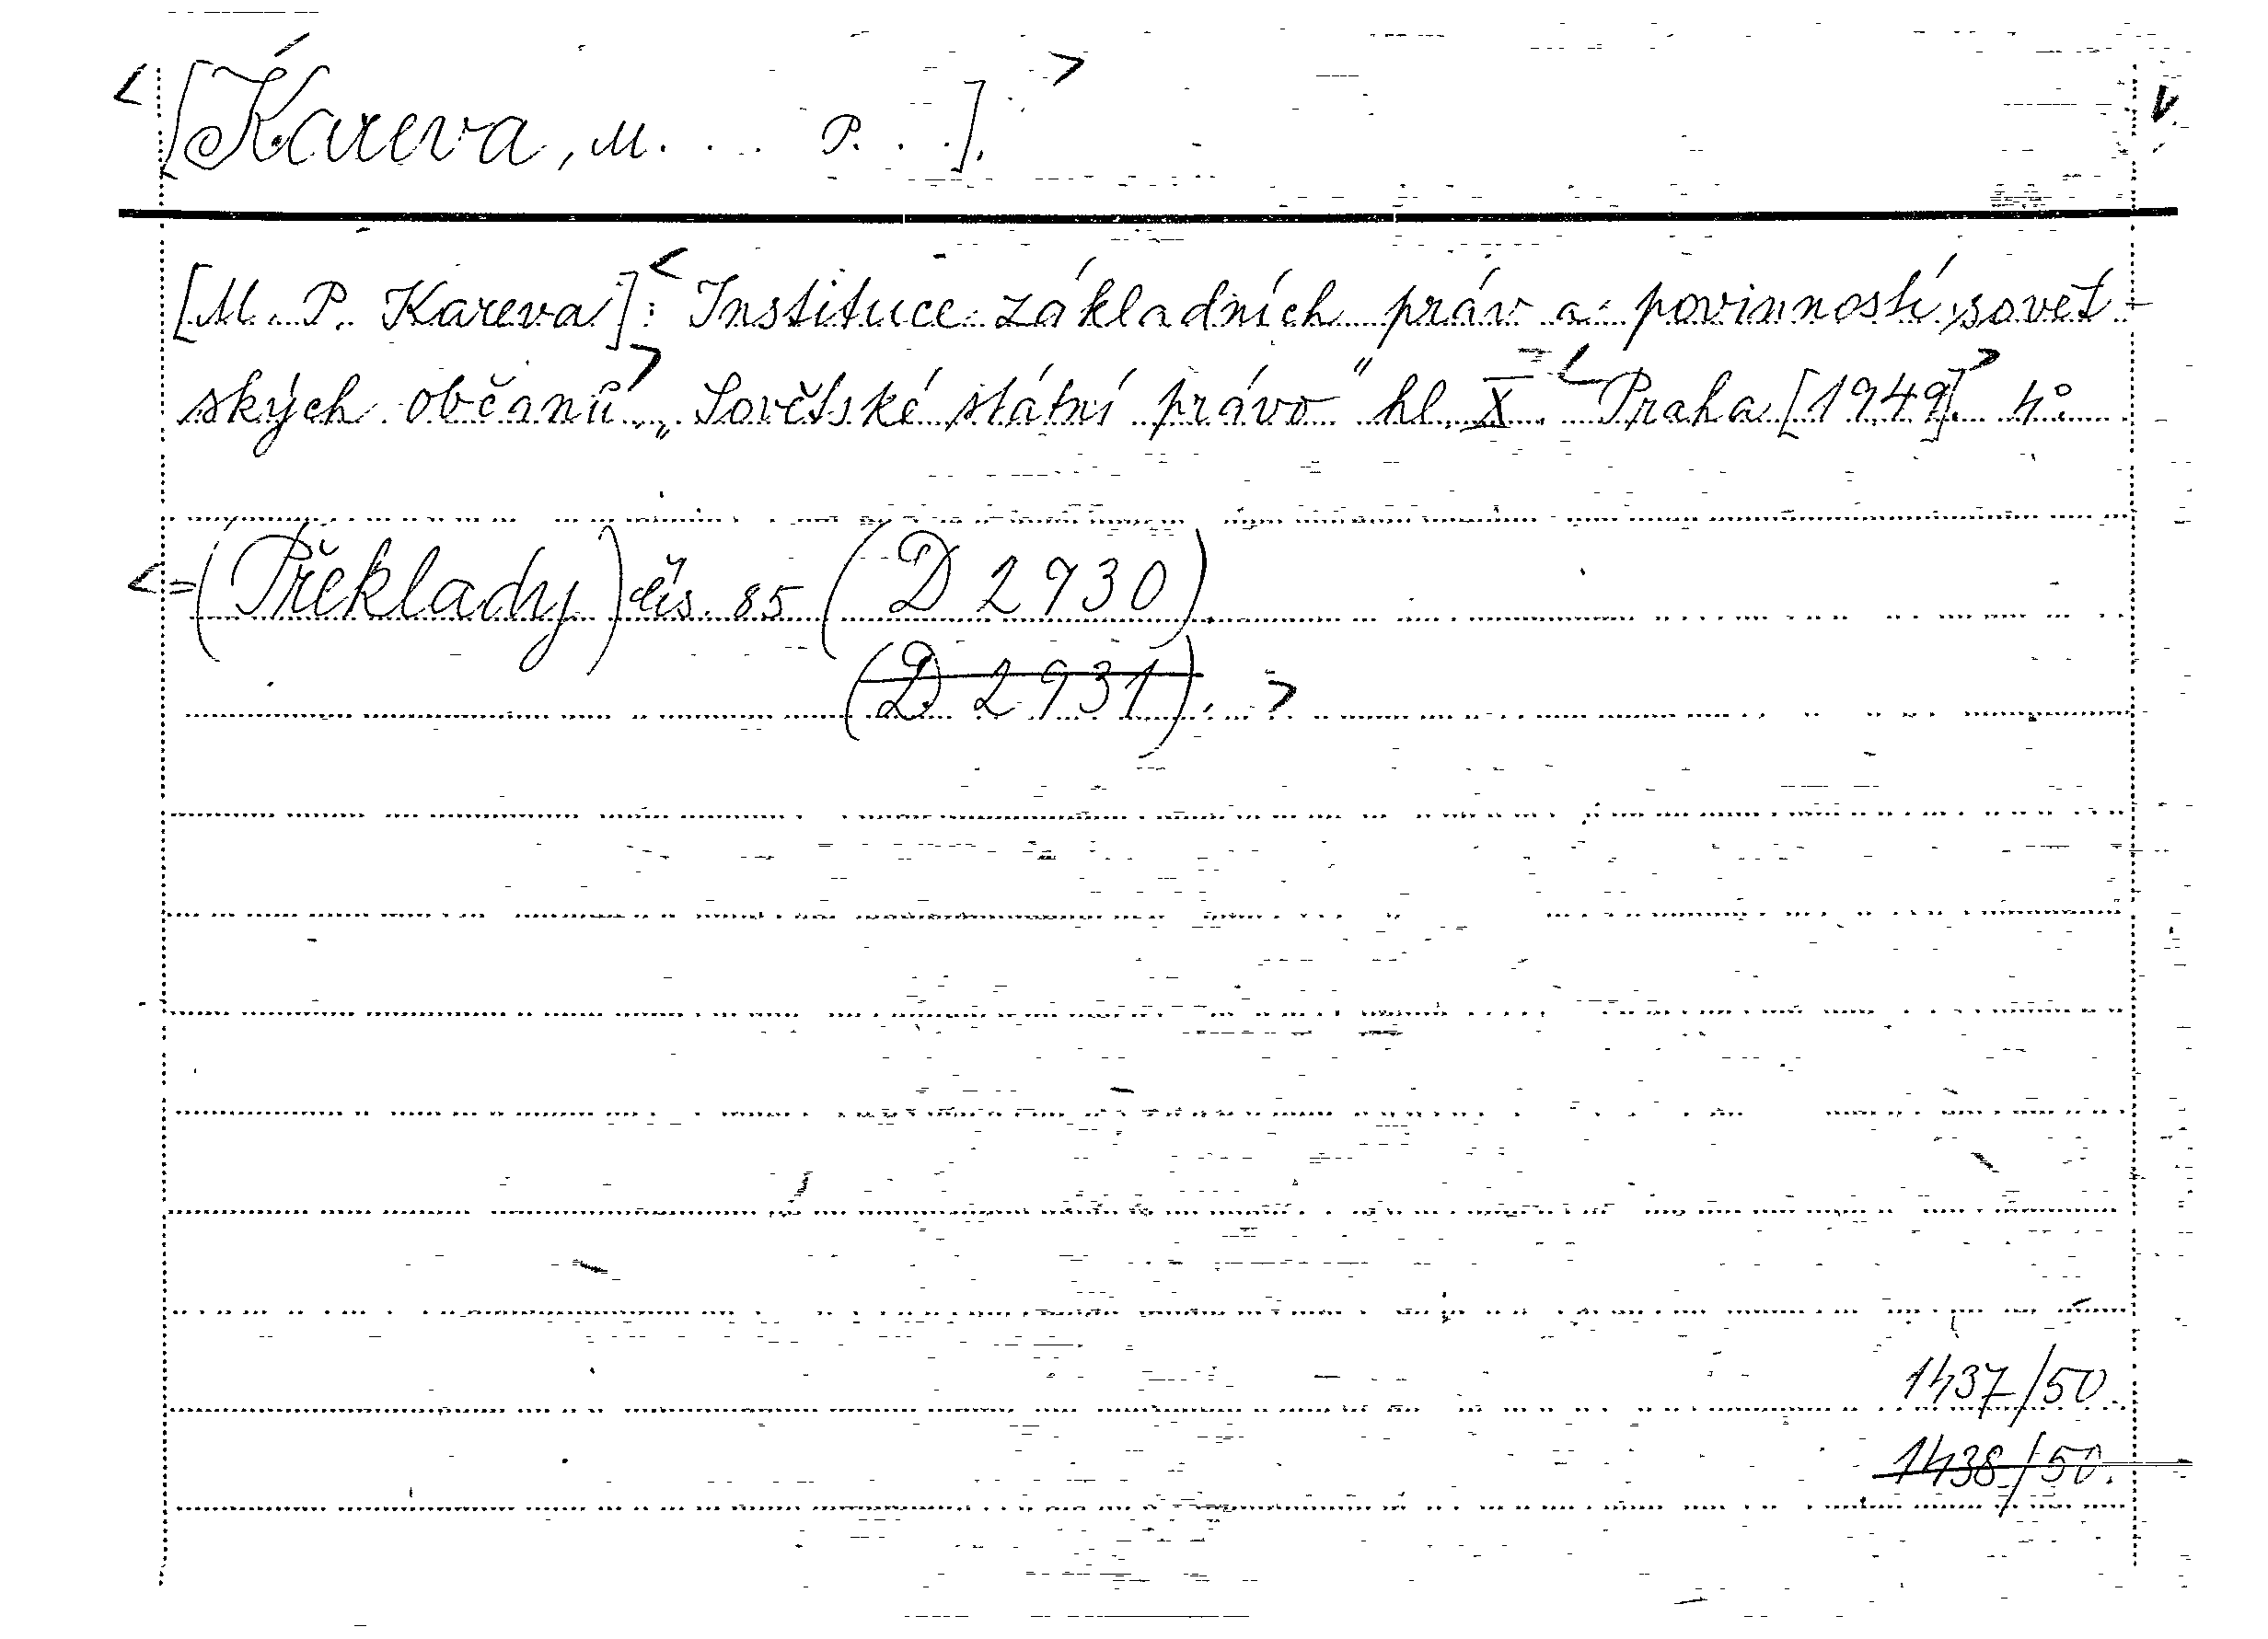 <[Kareva, M. . . . P. . .].>
V.
[M. P. Kareva]: <Instituce základních práv a povinností sovět-
ských občanů>. „Sovětské státní právo" hl. X. <Praha [1949].> 4°.
<=(Překlady) čís. 85 (D 2930).
(D 2931). >
1437/50.
1438/50.